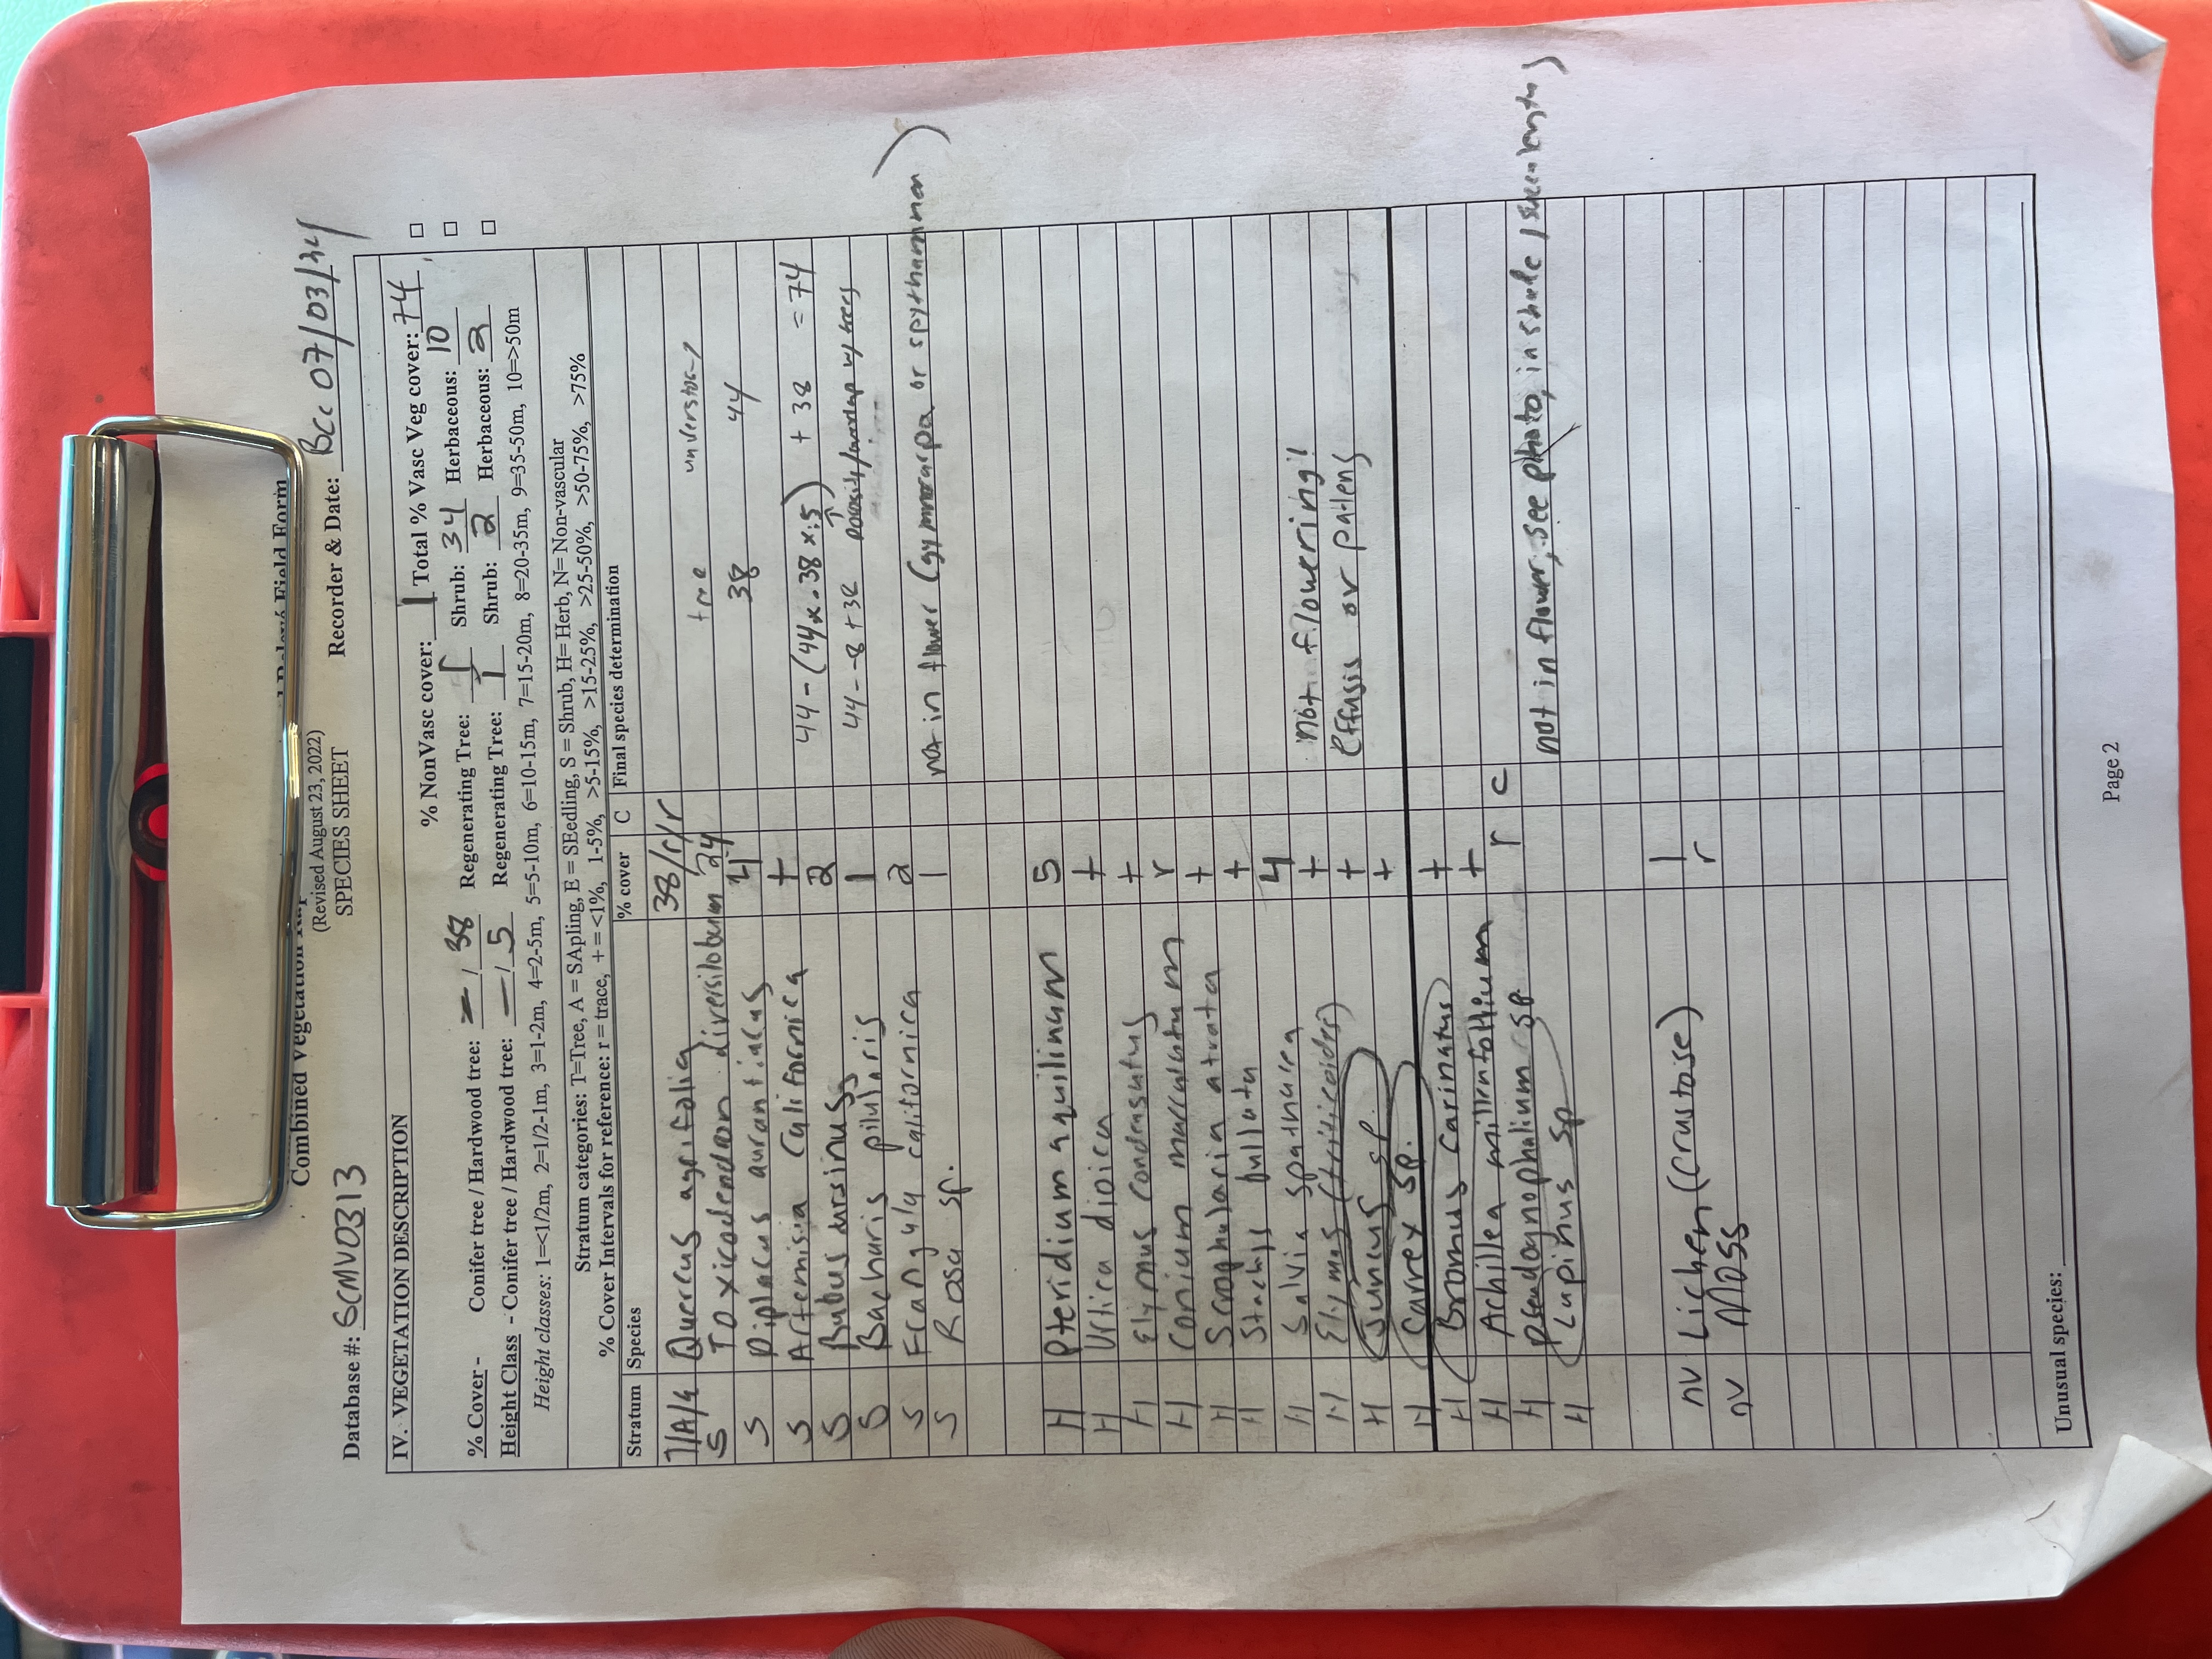 Combined Vegetation Rap
Field Form
(Revised August 23, 2022)
SPECIES SHEET
Database #: SCMV0313
Recorder & Date: BCC 07/03/24
IV. VEGETATION DESCRIPTION
% NonVasc cover: 1 Total % Vasc Veg cover: 74
% Cover - Conifer tree / Hardwood tree: - / 38 Regenerating Tree: r Shrub: 34 Herbaceous: 10
Height Class - Conifer tree / Hardwood tree: - / 5 Regenerating Tree: 1 Shrub: 2 Herbaceous: 2
Height classes: 1=<1/2m, 2=1/2-1m, 3=1-2m, 4=2-5m, 5=5-10m, 6=10-15m, 7=15-20m, 8=20-35m, 9=35-50m, 10=>50m
Stratum categories: T=Tree, A = SApling, E = SEedling, S = Shrub, H= Herb, N= Non-vascular
% Cover Intervals for reference: r = trace, + = <1%, 1-5%, >5-15%, >15-25%, >25-50%, >50-75%, >75%
Stratum Species % cover C Final species determination
Quercus agrifolia 38/r/r
S Toxicodendron diversilobum 24 tree understory
S Diplacus aurantiacus 4 38 44
S Artemisia californica + 44-(44x.38x.5) + 38 = 74
S Rubus ursinus 2 44--8+38 porosity/overlap w/ trees
S Bacharis pilularis 1
S Frangula californica 2 not in flower (gymnocarpa or spythamnea)
S Rosa sp. 1
H Pteridium aquilinum 5
H Urtica dioica +
H Elymus condensatus +
H Conium macculatum r
H Scrophularia atrata +
H Stachys bullata +
H Salvia spathacea 4
H Elymus (triticoides) + not flowering!
H Juncus sp. + effusis or patens
H Carex sp. +
H Bromus carinatus +
H Achillea millenfollium +
H pseudognophalium sp. r c
H Lupinus sp not in flower, see photo, in shade
nv Lichen (crustose) 1
nv Moss r
Unusual species:
Page 2